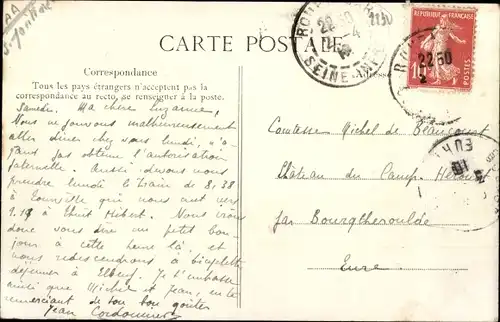 AA
CARTE POSTALE
Correspondance
Tous les pays étrangers n'acceptent pas la
correspondance au recto, se renseigner à la poste.
Samedi. Ma chère Suzanne,
Nous ne pouvons malheureusement
aller dîner chez vous lundi, n'a-
yant pas obtenu l'autorisation
paternelle. Aussi devons nous
prendre lundi le train de 8,38
à Tourville qui nous met vers
9.19 à Thuit Hébert. Nous irons
donc vous dire un petit bon-
jour à cette heure là et
nous redescendrons à bicyclette
déjeuner à Elbeuf. Je t'embrasse
ainsi que Michel et Jean, en te
remerciant de ton bon goûter
Jean Cordonnier
2230
ROUEN
22 50
SEINE-INF
Adresse
REPUBLIQUE FRANÇAISE
10
POSTES
22 50
EURE
Comtesse Michel de Beaucourt
Château du Camp Héroult
par Bourgtheroulde
Eure